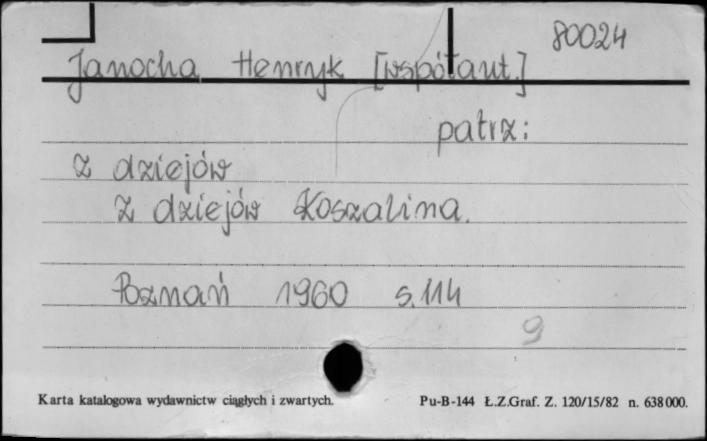 80024
Janocha Henryk [współaut.]
patrz:
Z dziejów
Z dziejów Koszalina.
Poznań 1960 s.114
9
Karta katalogowa wydawnictw ciągłych i zwartych. Pu-B-144 Ł.Z.Graf. Z. 120/15/82 n. 638000.